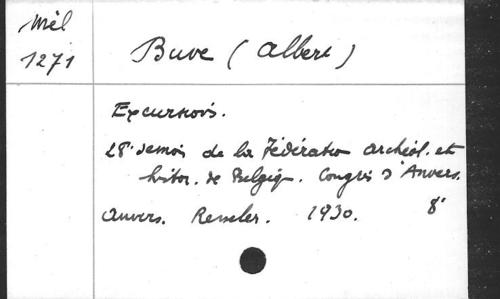 Mél
1271
Buve (Albert)
Excursions.
28e session de la Fédération archéol. et
histor. de Belgiq. Congrès d'Anvers.
Anvers. Resseler. 1930. 8°